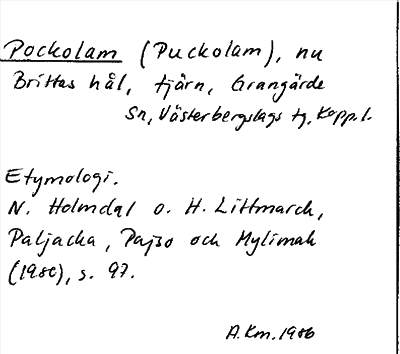 Pockolam (Puckolam), nu
Brittas hål, tjärn, Grangärde
Sn, Västerbergslags tg, Kopp.l.
Etymologi.
N. Holmdal o. H. Littmarck,
Paljacka, Pajso och Mylimak
(1980), s. 97.
A.Km. 1986